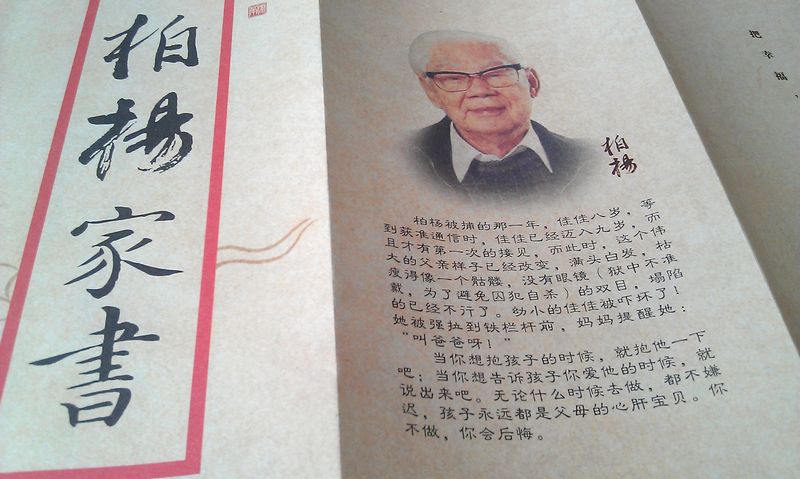 柏杨家書
柏杨
柏杨被捕的那一年，佳佳八岁，等
到获准通信时，佳佳已经迈入九岁，而
且才有第一次的接见，而此时，这个伟
大的父亲样子已经改变，满头白发，枯
瘦得像一个骷髅，没有眼镜（狱中不准
戴，为了避免囚犯自杀）的双目，塌陷
的已经不行了。幼小的佳佳被吓坏了！
她被强拉到铁栏杆前，妈妈提醒她：
“叫爸爸呀！”
当你想抱孩子的时候，就抱他一下
吧；当你想告诉孩子你爱他的时候，就
说出来吧。无论什么时候去做，都不嫌
迟，孩子永远都是父母的心肝宝贝。你
不做，你会后悔。
把幸福